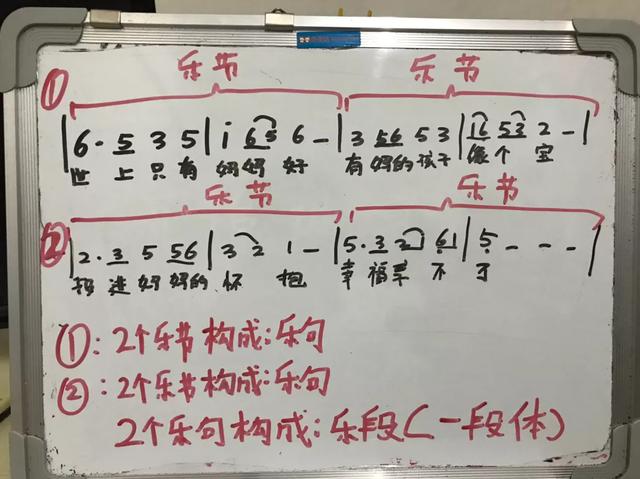 乐节 乐节
① |6· 5 3 5|i 65 6 -|3 56 53|i6 53 2 -|
世 上 只 有 妈妈 好 有 妈的 孩子 像 个 宝
乐节 乐节
② |2· 3 5 56|3 2 1 -|5· 3 2 61|5 - - -|
投 进 妈 妈的 怀 抱 幸 福 享 不 了
①: 2个乐节构成:乐句
②: 2个乐节构成:乐句
2个乐句构成:乐段(一段体)